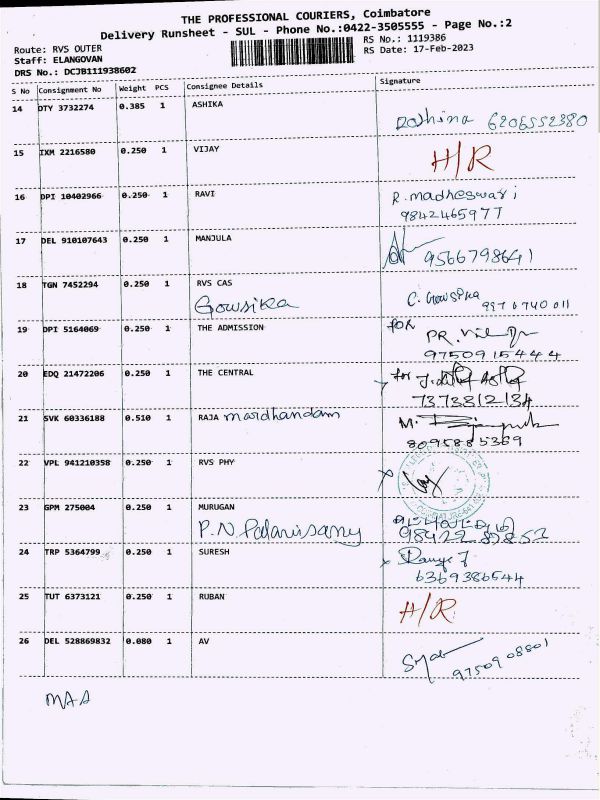 THE PROFESSIONAL COURIERS, Coimbatore
Delivery Runsheet - SUL - Phone No.:0422-3505555 - Page No.:2
Route: RVS OUTER
RS No.: 1119386
Staff: ELANGOVAN
RS Date: 17-Feb-2023
DRS No.: DCJB111938602
S No Consignment No Weight PCS Consignee Details Signature
14 DTY 3732274 0.385 1 ASHIKA
6206552380
15 IXM 2216580 0.250 1 VIJAY
H/R
16 DPI 10402966 0.250 1 RAVI R. madheswari
9842465977
17 DEL 910107643 0.250 1 MANJULA
9566798641
18 TGN 7452294 0.250 1 RVS CAS
Gowsika C. Gowsika 9976740011
19 DPI 5164069 0.250 1 THE ADMISSION for
PR.
9750915444
20 EDQ 21472206 0.250 1 THE CENTRAL for
7373812134
21 SVK 60336188 0.510 1 RAJA mardhandam M.
8095885369
22 VPL 941210358 0.250 1 RVS PHY
23 GPM 275004 0.250 1 MURUGAN
P.N Palanisamy
24 TRP 5364799 0.250 1 SURESH
6369386544
25 TUT 6373121 0.250 1 RUBAN
H/R
26 DEL 528869832 0.080 1 AV
9750908801
MAA